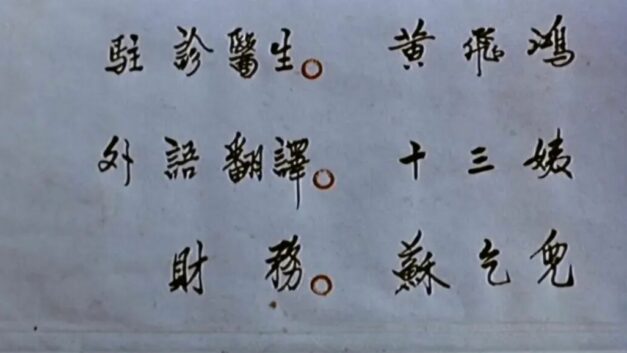 駐診醫生。 黃飛鴻
外語翻譯。 十三姨
財務。 蘇乞兒